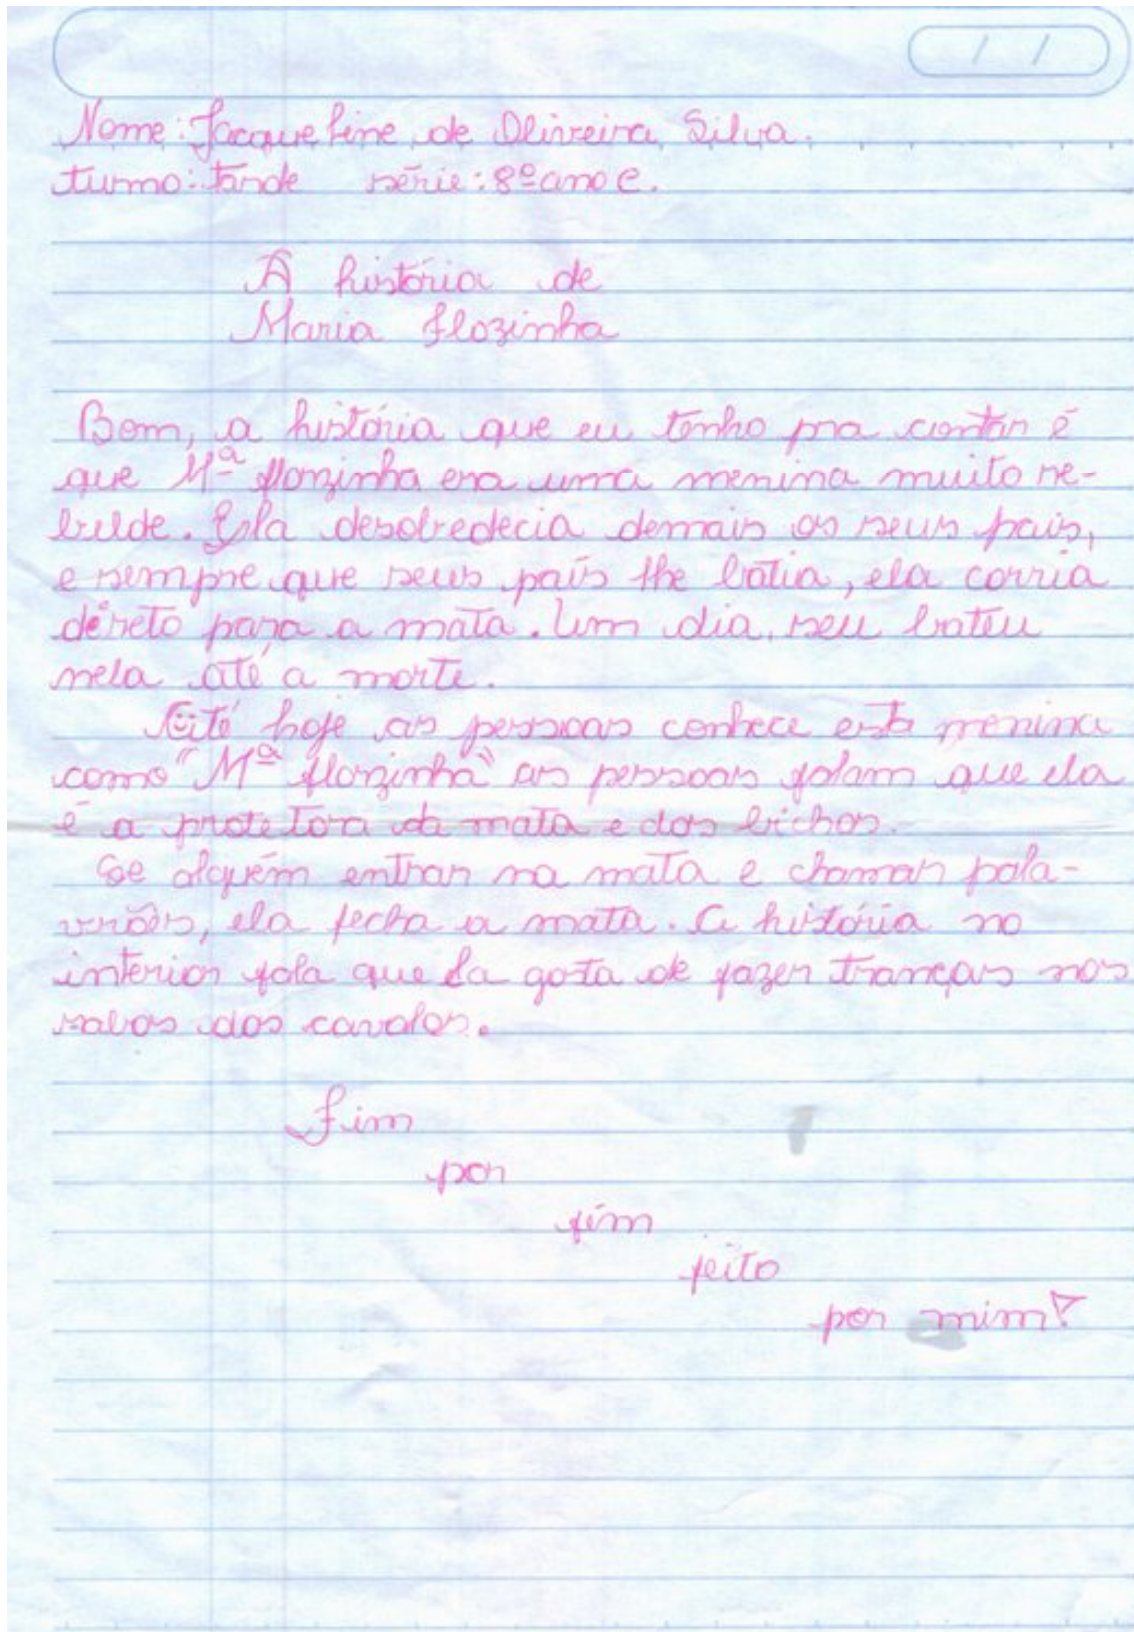 Nome: Jacqueline de Oliveira Silva.
turno: tarde série: 8º ano C.
A história de
Maria flozinha
Bom, a história que eu tenho pra contar é
que Mª florzinha era uma menina muito re-
belde. Ela desobedecia demais os seus pais,
e sempre que seus pais lhe batia, ela corria
direto para a mata. Um dia, seu bateu
nela até a morte.
Até hoje as pessoas conhece esta menina
como "Mª florzinha" as pessoas falam que ela
é a protetora da mata e dos bichos.
Se alguém entrar na mata e chamar pala-
vrões, ela fecha a mata. A história no
interior fala que ela gosta de fazer tranças nos
rabos dos cavalos.
Fim
por
fim
feito
por mim!